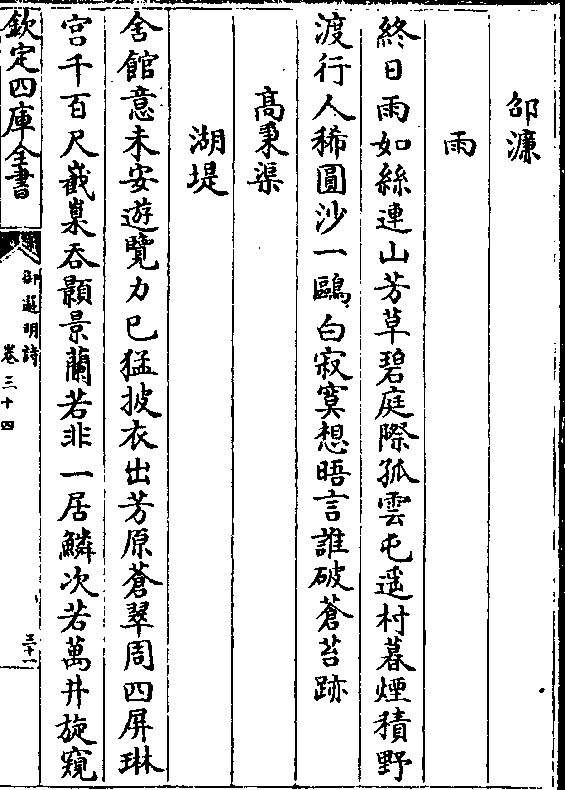 邵濂
雨
終日雨如絲連山芳草碧庭際孤雲屯遥村暮煙積野
渡行人稀圓沙一鷗白寂寞想晤言誰破蒼苔跡
高秉渠
湖堤
舍館意未安遊覽力已猛披衣出芳原蒼翠周四屏琳
宫千百尺嶻巢吞顥景蘭若非一居鱗次若萬井旋窺
欽定四庫全書
御選明詩
卷三十四
三十一